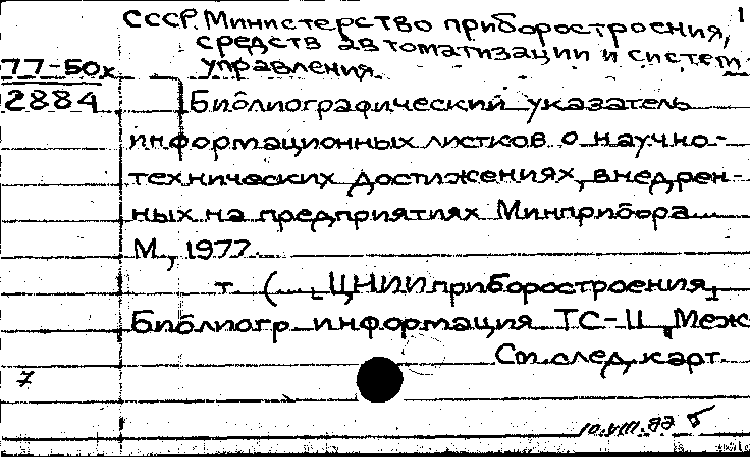 СССР. Министерство приборостроения, 1
средств автоматизации и систем
управления.
77-50к
2884
Библиографический указатель
информационных листков о научно-
технических достижениях, внедрен-
ных на предприятиях Минприбора
М., 1977.
т. (... ЦНИИприборостроения,
Библиогр. информация ТС-11, Меж
См. след. карт.
7
10.VIII.82